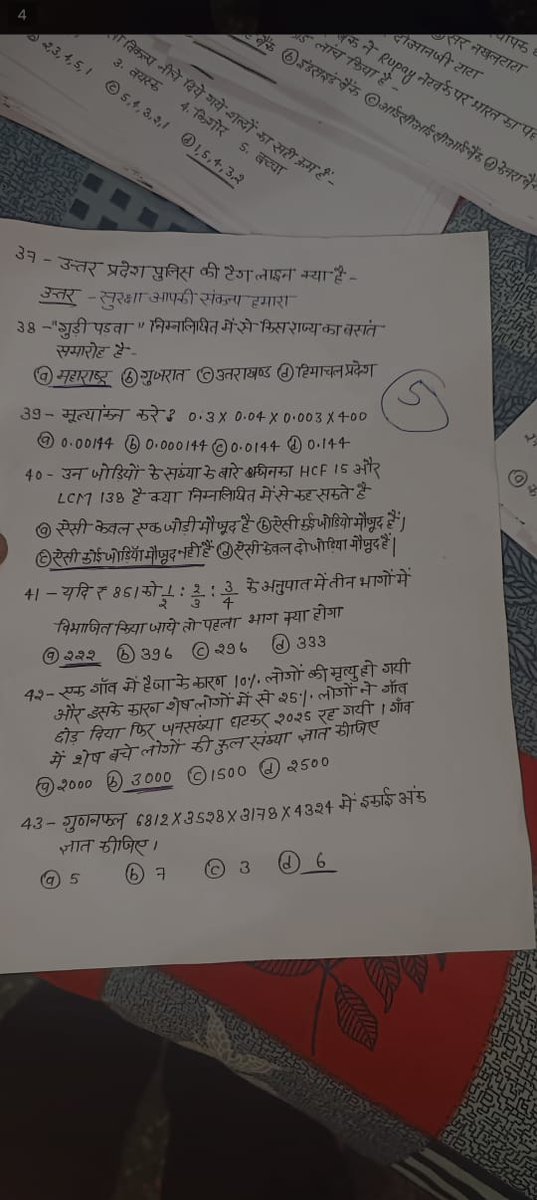 4
बैंक ने Rupay नेटवर्क पर भारत का पह
लांच किया है -
ⓑ इंडसइंड बैंक ⓒ आईसीआईसीआई बैंक ⓓ केनरा बैं
विकल्प नीचे दिये गये शब्दों का सही क्रम है -
3. वयस्क 4. किशोर 5. बच्चा
2,3,4,5,1 ⓒ 5,4,3,2,1 ⓓ 1,5,4,3,2
37 - उत्तर प्रदेश पुलिस की टैग लाइन क्या है -
उत्तर - सुरक्षा आपकी संकल्प हमारा
38 - "गुड़ी पडवा" निम्नलिखित में से किस राज्य का वसंत
समारोह है -
ⓐ महाराष्ट्र ⓑ गुजरात ⓒ उतराखण्ड ⓓ हिमाचल प्रदेश
5
39 - मूल्यांकन करे ? 0.3 X 0.04 X 0.003 X 400
ⓐ 0.00144 ⓑ 0.000144 ⓒ 0.0144 ⓓ 0.144
40 - उन जोडियों के संख्या के बारे जिनका HCF 15 और
LCM 138 है क्या निम्नलिखित में से कह सकते है
ⓐ ऐसी केवल एक जोडी मौजूद है ⓑ ऐसी कई जोडियो मौजूद हैं|
ⓒ ऐसी कोई जोडियाँ मौजूद नही हैं ⓓ ऐसी केवल दो जोडिया मौजूद हैं|
41 - यदि ₹ 851 को 1/2 : 2/3 : 3/4 के अनुपात में तीन भागों में
विभाजित किया जाये तो पहला भाग क्या होगा
ⓐ 222 ⓑ 396 ⓒ 296 ⓓ 333
42 - एक गाँव में हैजा के कारण 10%. लोगों की मृत्यु हो गयी
और इसके कारण शेष लोगों में से 25%. लोगों ने गाँव
छोड दिया फिर जनसंख्या घटकर 2025 रह गयी । गाँव
में शेष बचे लोगों की कुल संख्या ज्ञात कीजिए
ⓐ 2000 ⓑ 3000 ⓒ 1500 ⓓ 2500
43 - गुणनफल 6812 X 3528 X 3178 X 4324 में इकाई अंक
ज्ञात कीजिए ।
ⓐ 5 ⓑ 7 ⓒ 3 ⓓ 6